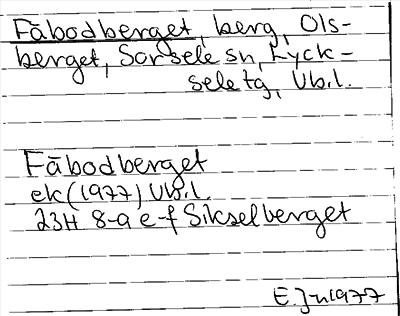 Fäbodberget, berg, Ols-
berget, Sorsele sn, Lyck-
sele tg, Vb.l.
Fäbodberget
ek (1977) Vb.l.
23H 8-9 e-f Sikselberget
E.Jn 1977